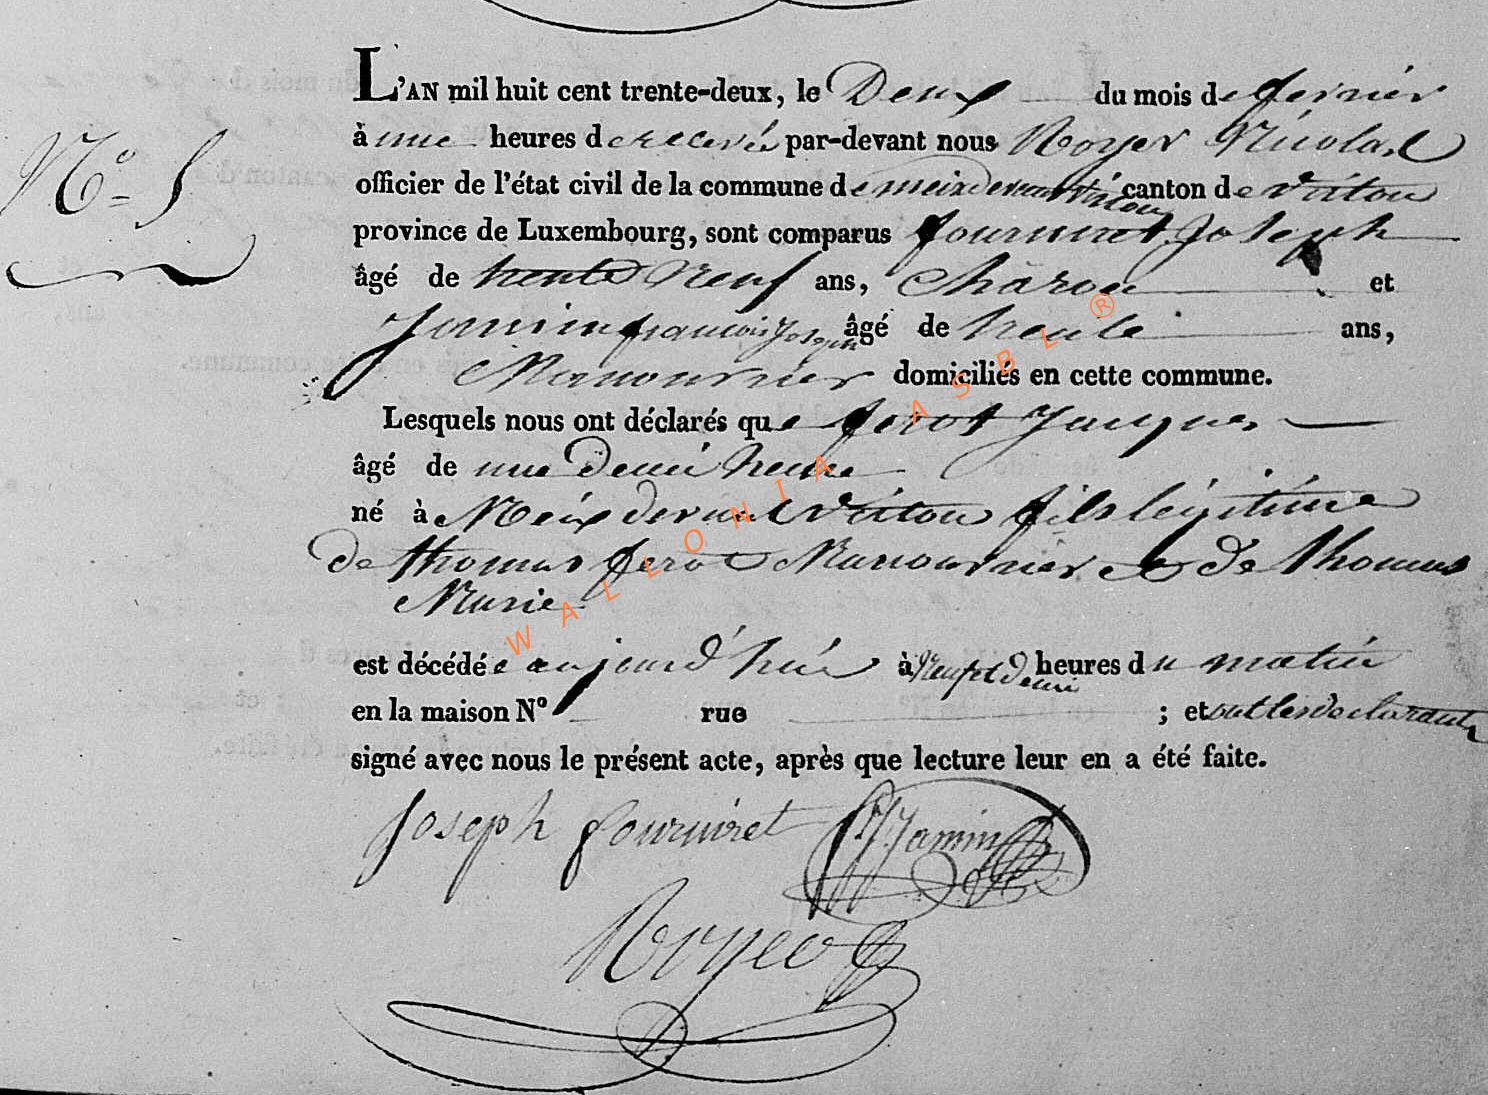 L'AN mil huit cent trente-deux, le Deux du mois de fevrier
N° 5
à une heures de relevée par-devant nous Royer Nicolas
officier de l'état civil de la commune de meix devant virton canton de virton
province de Luxembourg, sont comparus fourniret Joseph
âgé de trente Neuf ans, Charon et
Jamin francois Joseph âgé de trente ans,
Manouvrier domiciliés en cette commune.
Lesquels nous ont déclarés que ferot Jacques
âgé de une demi heure
né à Meix devant Virton fils légitime
de thomas ferot Manouvrier et de thomas
Marie
est décédé aujourd'hui à Neuf et demi heures du matin
en la maison N° rue ; et ont les déclarants
signé avec nous le présent acte, après que lecture leur en a été faite.
Joseph fourniret Jamin
Royer
WALLONIA ASBL ®